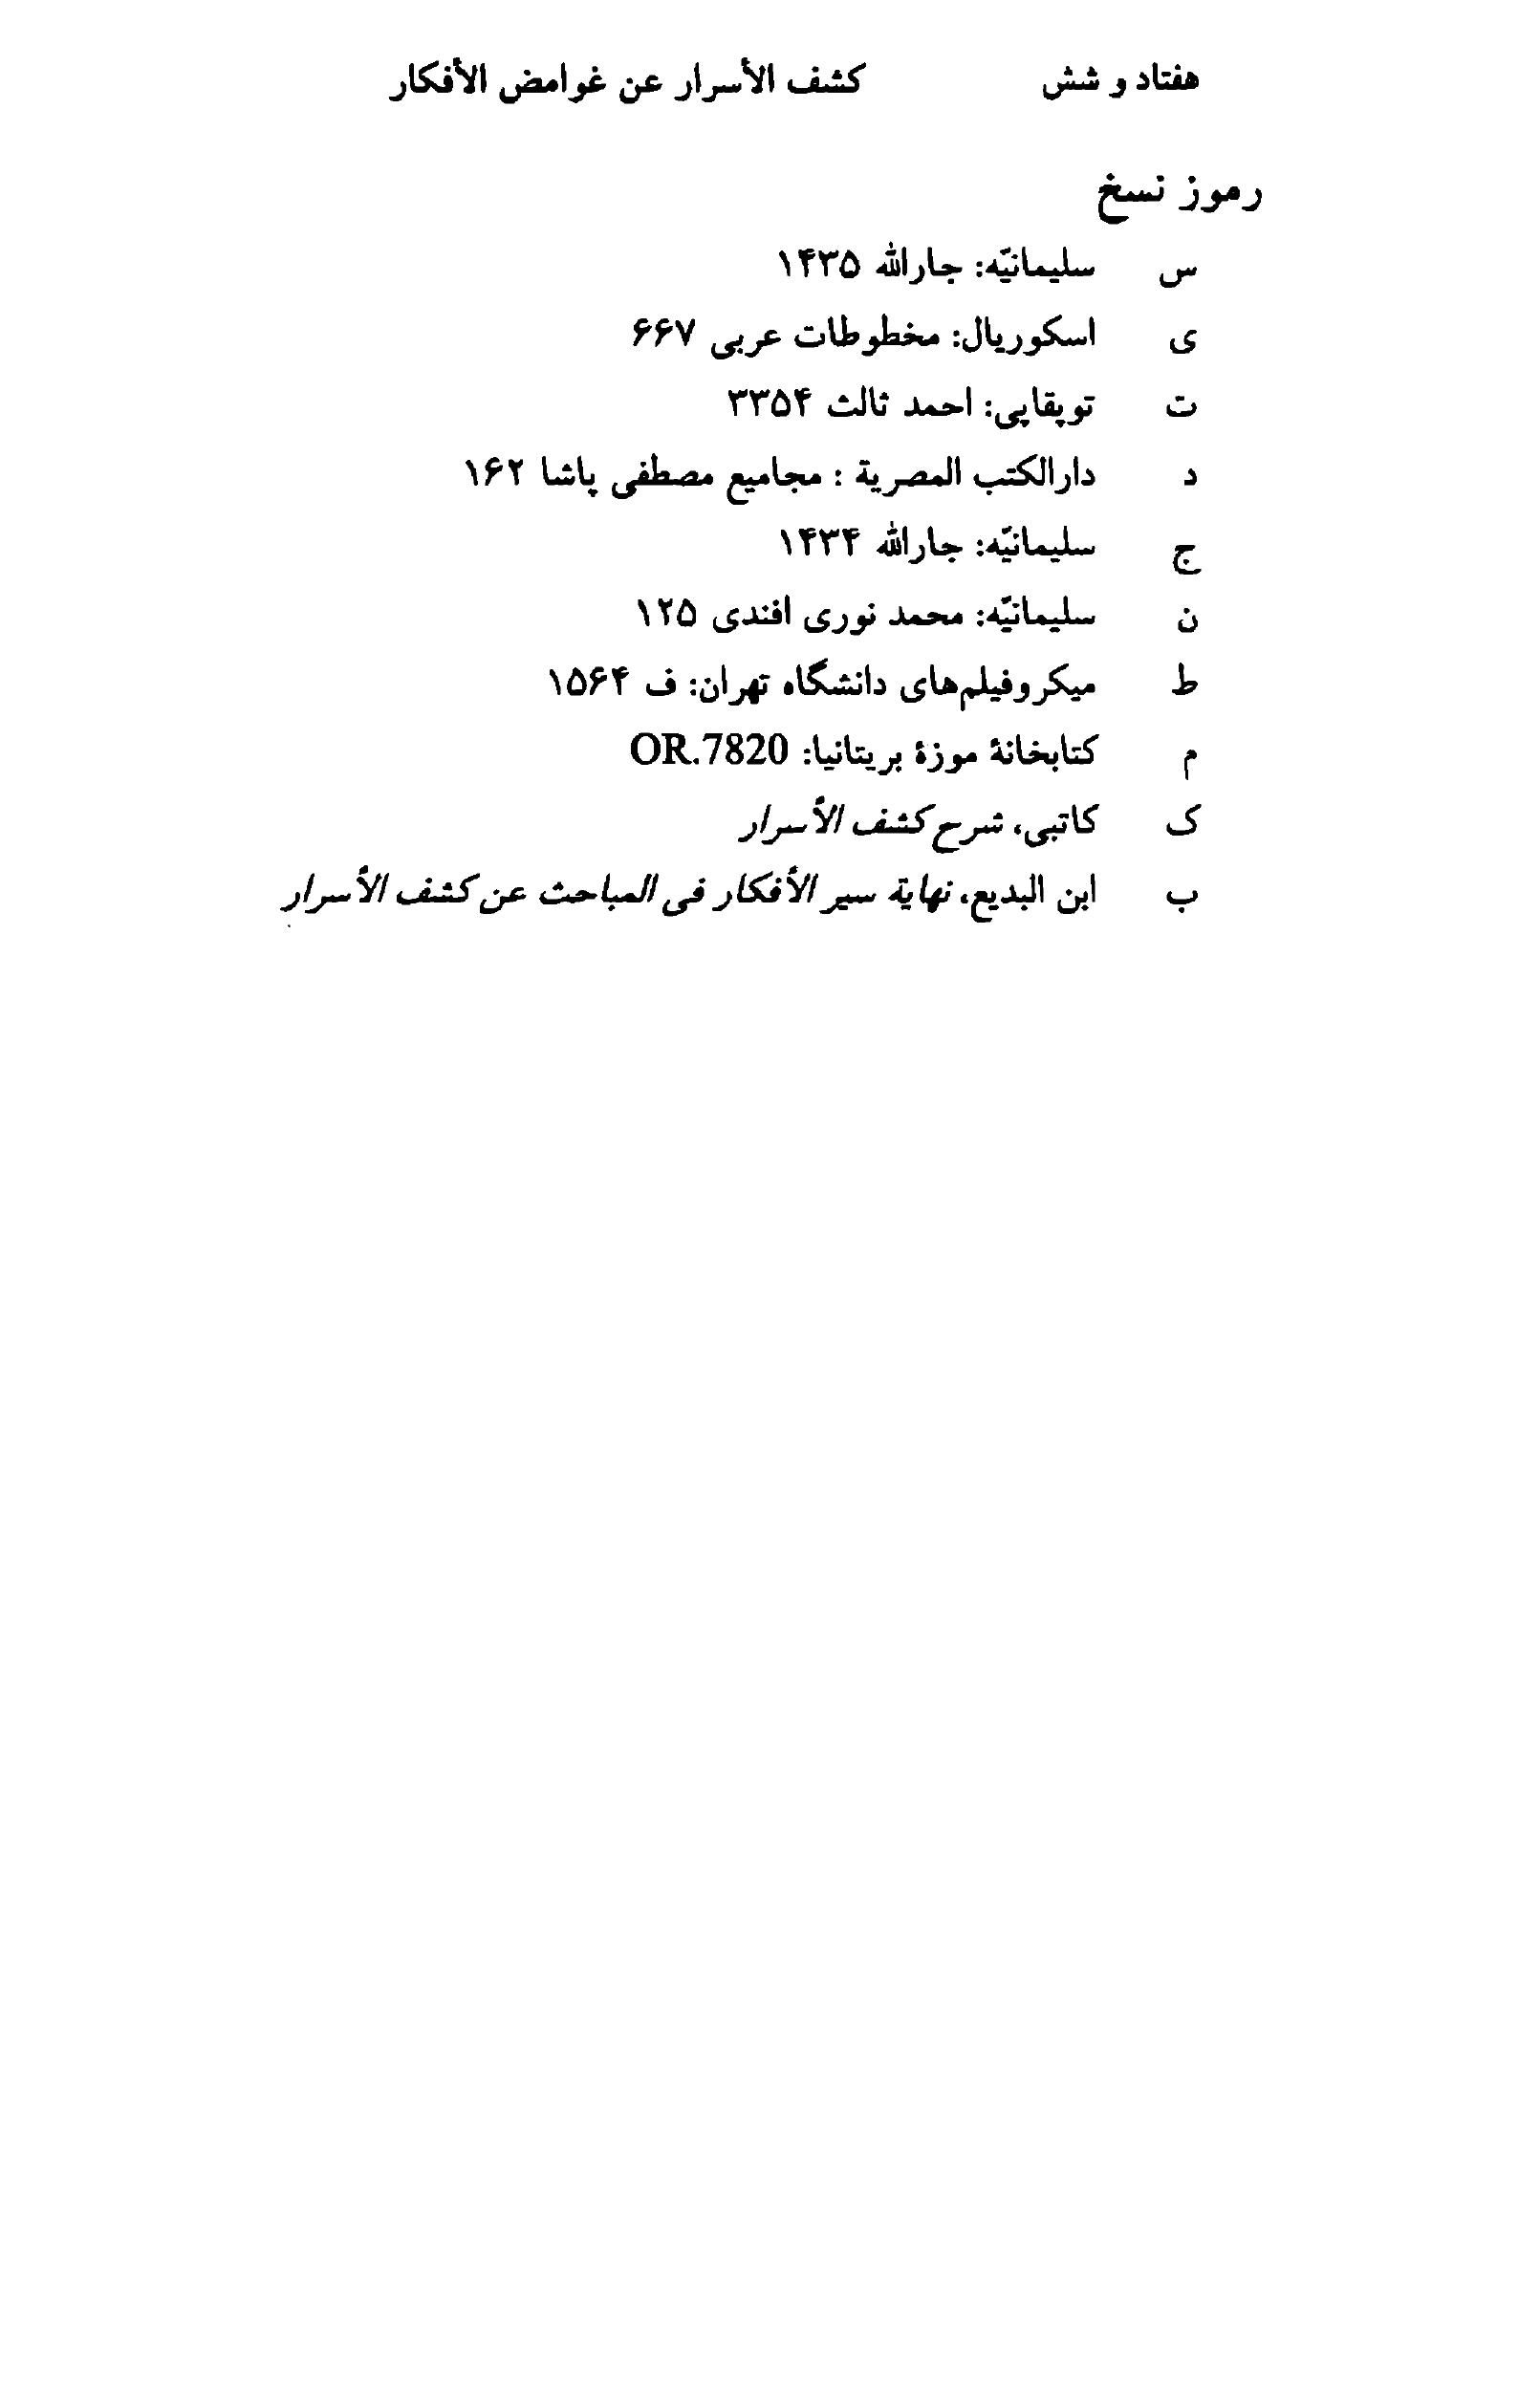 هفتاد و شش کشف الأسرار عن غوامض الأفکار
رموز نسخ
س سلیمانیّه: جارالله ۱۴۳۵
ی اسکوریال: مخطوطات عربی ۶۶۷
ت توپقاپی: احمد ثالث ۳۳۵۴
د دارالکتب المصریة : مجامیع مصطفی پاشا ۱۶۲
ج سلیمانیّه: جارالله ۱۴۳۴
ن سلیمانیّه: محمد نوری افندی ۱۲۵
ط میکروفیلم‌های دانشگاه تهران: ف ۱۵۶۴
م کتابخانهٔ موزهٔ بریتانیا: OR.7820
ک کاتبی، شرح کشف الأسرار
ب ابن البدیع، نهایة سیر الأفکار فی المباحث عن کشف الأسرار